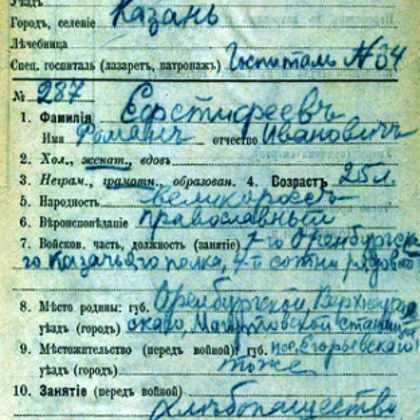 Уѣздъ
Городъ, селеніе Казань
Лѣчебница
Спец. госпиталь (лазаретъ, патронажъ) Госпиталь N 34
№ 287
1. Фамилія Ефстифеевъ
Имя Романъ отчество Ивановичъ
2. Хол., женат., вдовъ.
3. Неграм., грамотн., образован. 4. Возрастъ 25 л.
5. Народность великороссъ
6. Вѣроисповѣданіе православный
7. Войсков. часть, должность (занятіе) 7-го Оренбургска-
го Казачьяго полка, 4-й сотни рядовой
8. Мѣсто родины: губ. Оренбургской, Верхнеураль
уѣздъ (городъ) скаго, Магнитовской станицы
9. Мѣстожительство (передъ войной): губ. пос. Егорьевскаго
уѣздъ (городъ) тоже
10. Занятіе (передъ войной)
хлѣбопашество